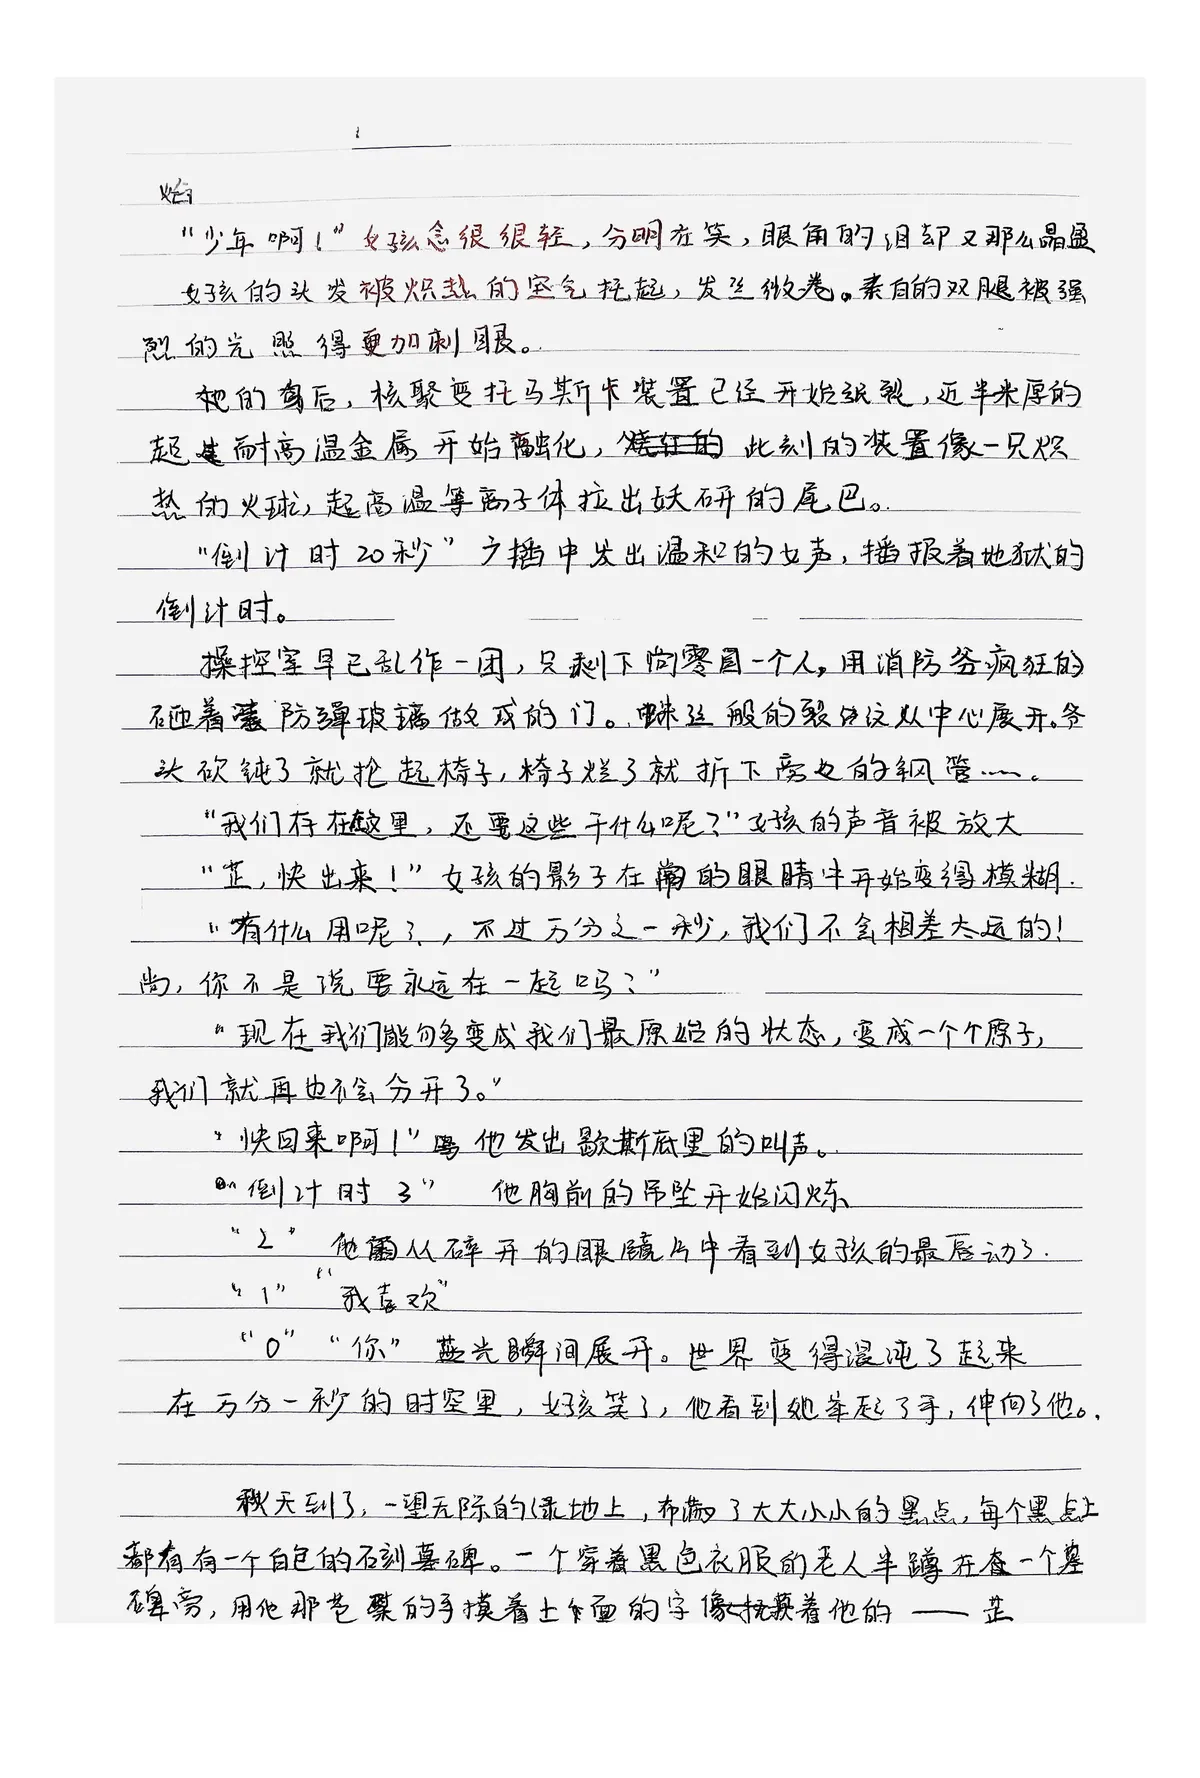 始
“少年啊！”女孩念很很轻，分明在笑，眼角的泪却又那么晶莹
女孩的头发被炽热的空气托起，发丝微卷。素白的双腿被强
烈的光照得更加刺眼。
她的身后，核聚变托马斯卡装置已经开始崩裂，近半米厚的
起耐高温金属开始融化，烧红的此刻的装置像一只炽
热的火球，起高温等离子体拉出妖研的尾巴。
“倒计时20秒”广播中发出温和的女声，播报着地狱的
倒计时。
操控室早已乱作一团，只剩下尚零自一个人。用消防斧疯狂的
砸着防弹玻璃做成的门。蛛丝般的裂纹从中心展开。斧
头砍钝了就抢起椅子，椅子烂了就折下旁边的钢管……。
“我们存在这里，还要这些干什么呢？”女孩的声音被放大
“芷，快出来！”女孩的影子在尚的眼睛中开始变得模糊.
“有什么用呢？，不过万分之一秒，我们不会相差太远的！
尚，你不是说要永远在一起吗？”
“现在我们能够变成我们最原始的状态，变成一个个原子，
我们就再也不会分开了。”
“快回来啊！”他发出歇斯底里的叫声。
“倒计时3” 他胸前的吊坠开始闪烁、
“2” 他从碎开的眼镜片中看到女孩的最唇动了.
“1” “我喜欢”
“0” “你” 蓝光瞬间展开。世界变得混沌了起来
在万分一秒的时空里，女孩笑了，他看到她举起了手，伸向了他。.
秋天到了，一望无际的绿地上，布满了大大小小的黑点，每个黑点上
都有有一个白色的石刻墓碑。一个穿着黑色衣服的老人半蹲在一个墓
碑旁，用他那苍桑的手摸着上面的字像抚摸着他的——芷